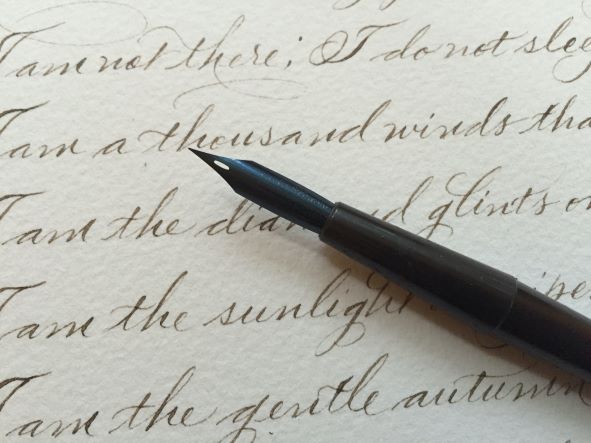 I am not there; I do not slee
I am a thousand winds tha
I am the diam d glints o
I am the sunligh ipe
I am the gentle autumn